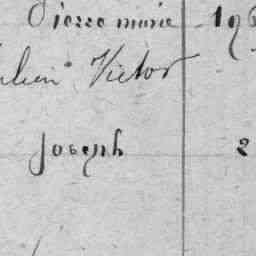 Pierre marie 19
Victor
Joseph 2